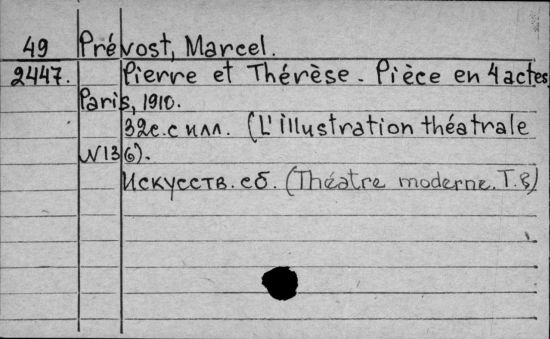 49 Prévost, Marcel.
2447. Pierre et Thérèse. Pièce en 4 actes
Paris, 1910.
32с. с илл. (L'illustration théatrale
N 136).
Искусств. сб. (Théatre moderne. T. 8)